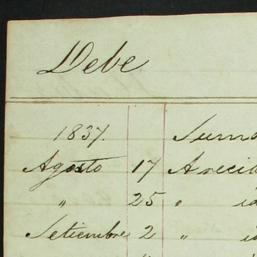 Debe
1837. Suma
Agosto 17 A recib
" 25 " id
Setiembre 2 " id